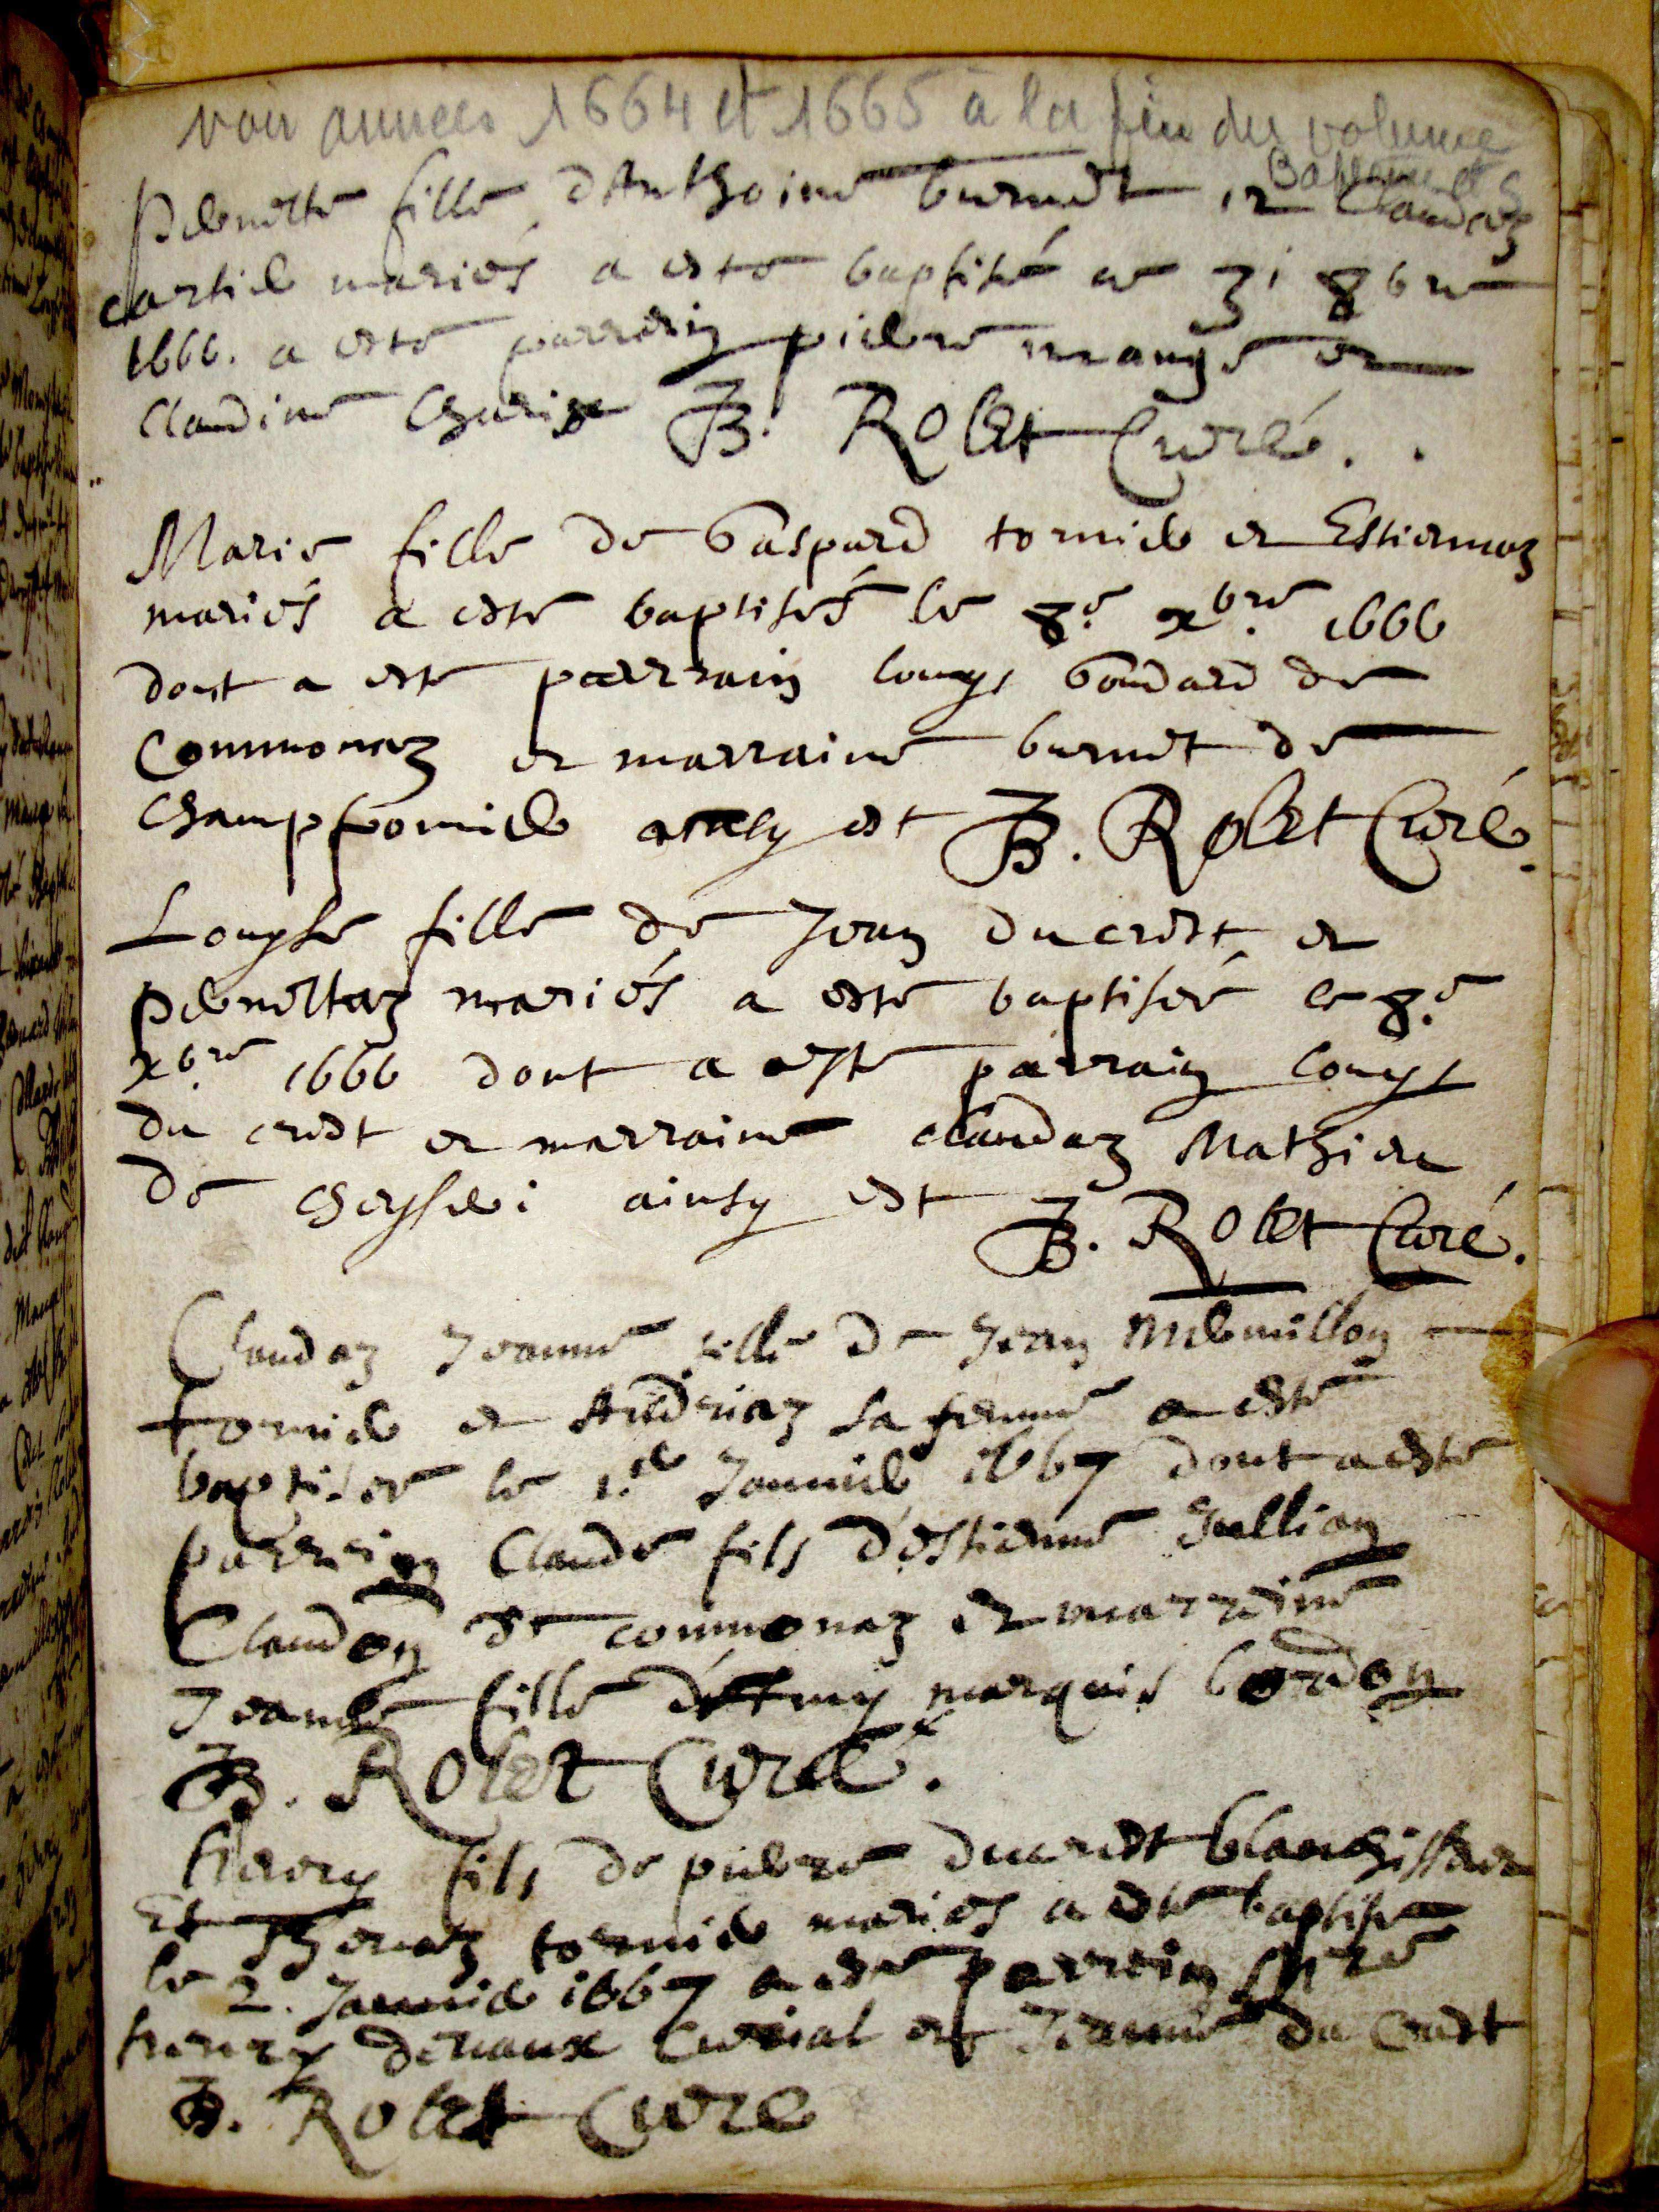 voir années 1664 et 1665 à la fin du volume
Baptêmes
Pernette fille d'Anthoine burnet et Claudaz
cartier mariés a esté baptisé ce 31 8bre
1666. a esté parrein pierre mange et
Claudine B. Rolet Curé.
Marie fille de Gaspard tornier et Estiennaz
mariés a esté baptiseé le 8e xbre 1666
dont a esté parrain louys Goudard de
Commonaz et marraine burnet de
Champfromier ainsy est B. Rolet Curé.
Louyse fille de Jean ducrest et
pernettaz mariés a esté baptisée le 8e
xbre 1666 dont a esté parrain louys
du crest et marraine claudaz Mathieu
de ainsy est
B. Rolet Curé.
Claudaz Jeanne fille de Jean Mermillon
tornier et Andriaz sa femme a esté
baptisée le 1er Janvier 1667 dont a esté
parrein Claude fils d'estienne
Claudon de commonaz et marreine
Jeanne fille marquis
B. Rolet Curé.
henry fils de pierre ducrest
Et Thevenaz tornier mariés a esté baptisé
le 2. Janvier 1667 a esté parrein
henry devaux Curial et Jeanne du Crest
B. Rolet Curé